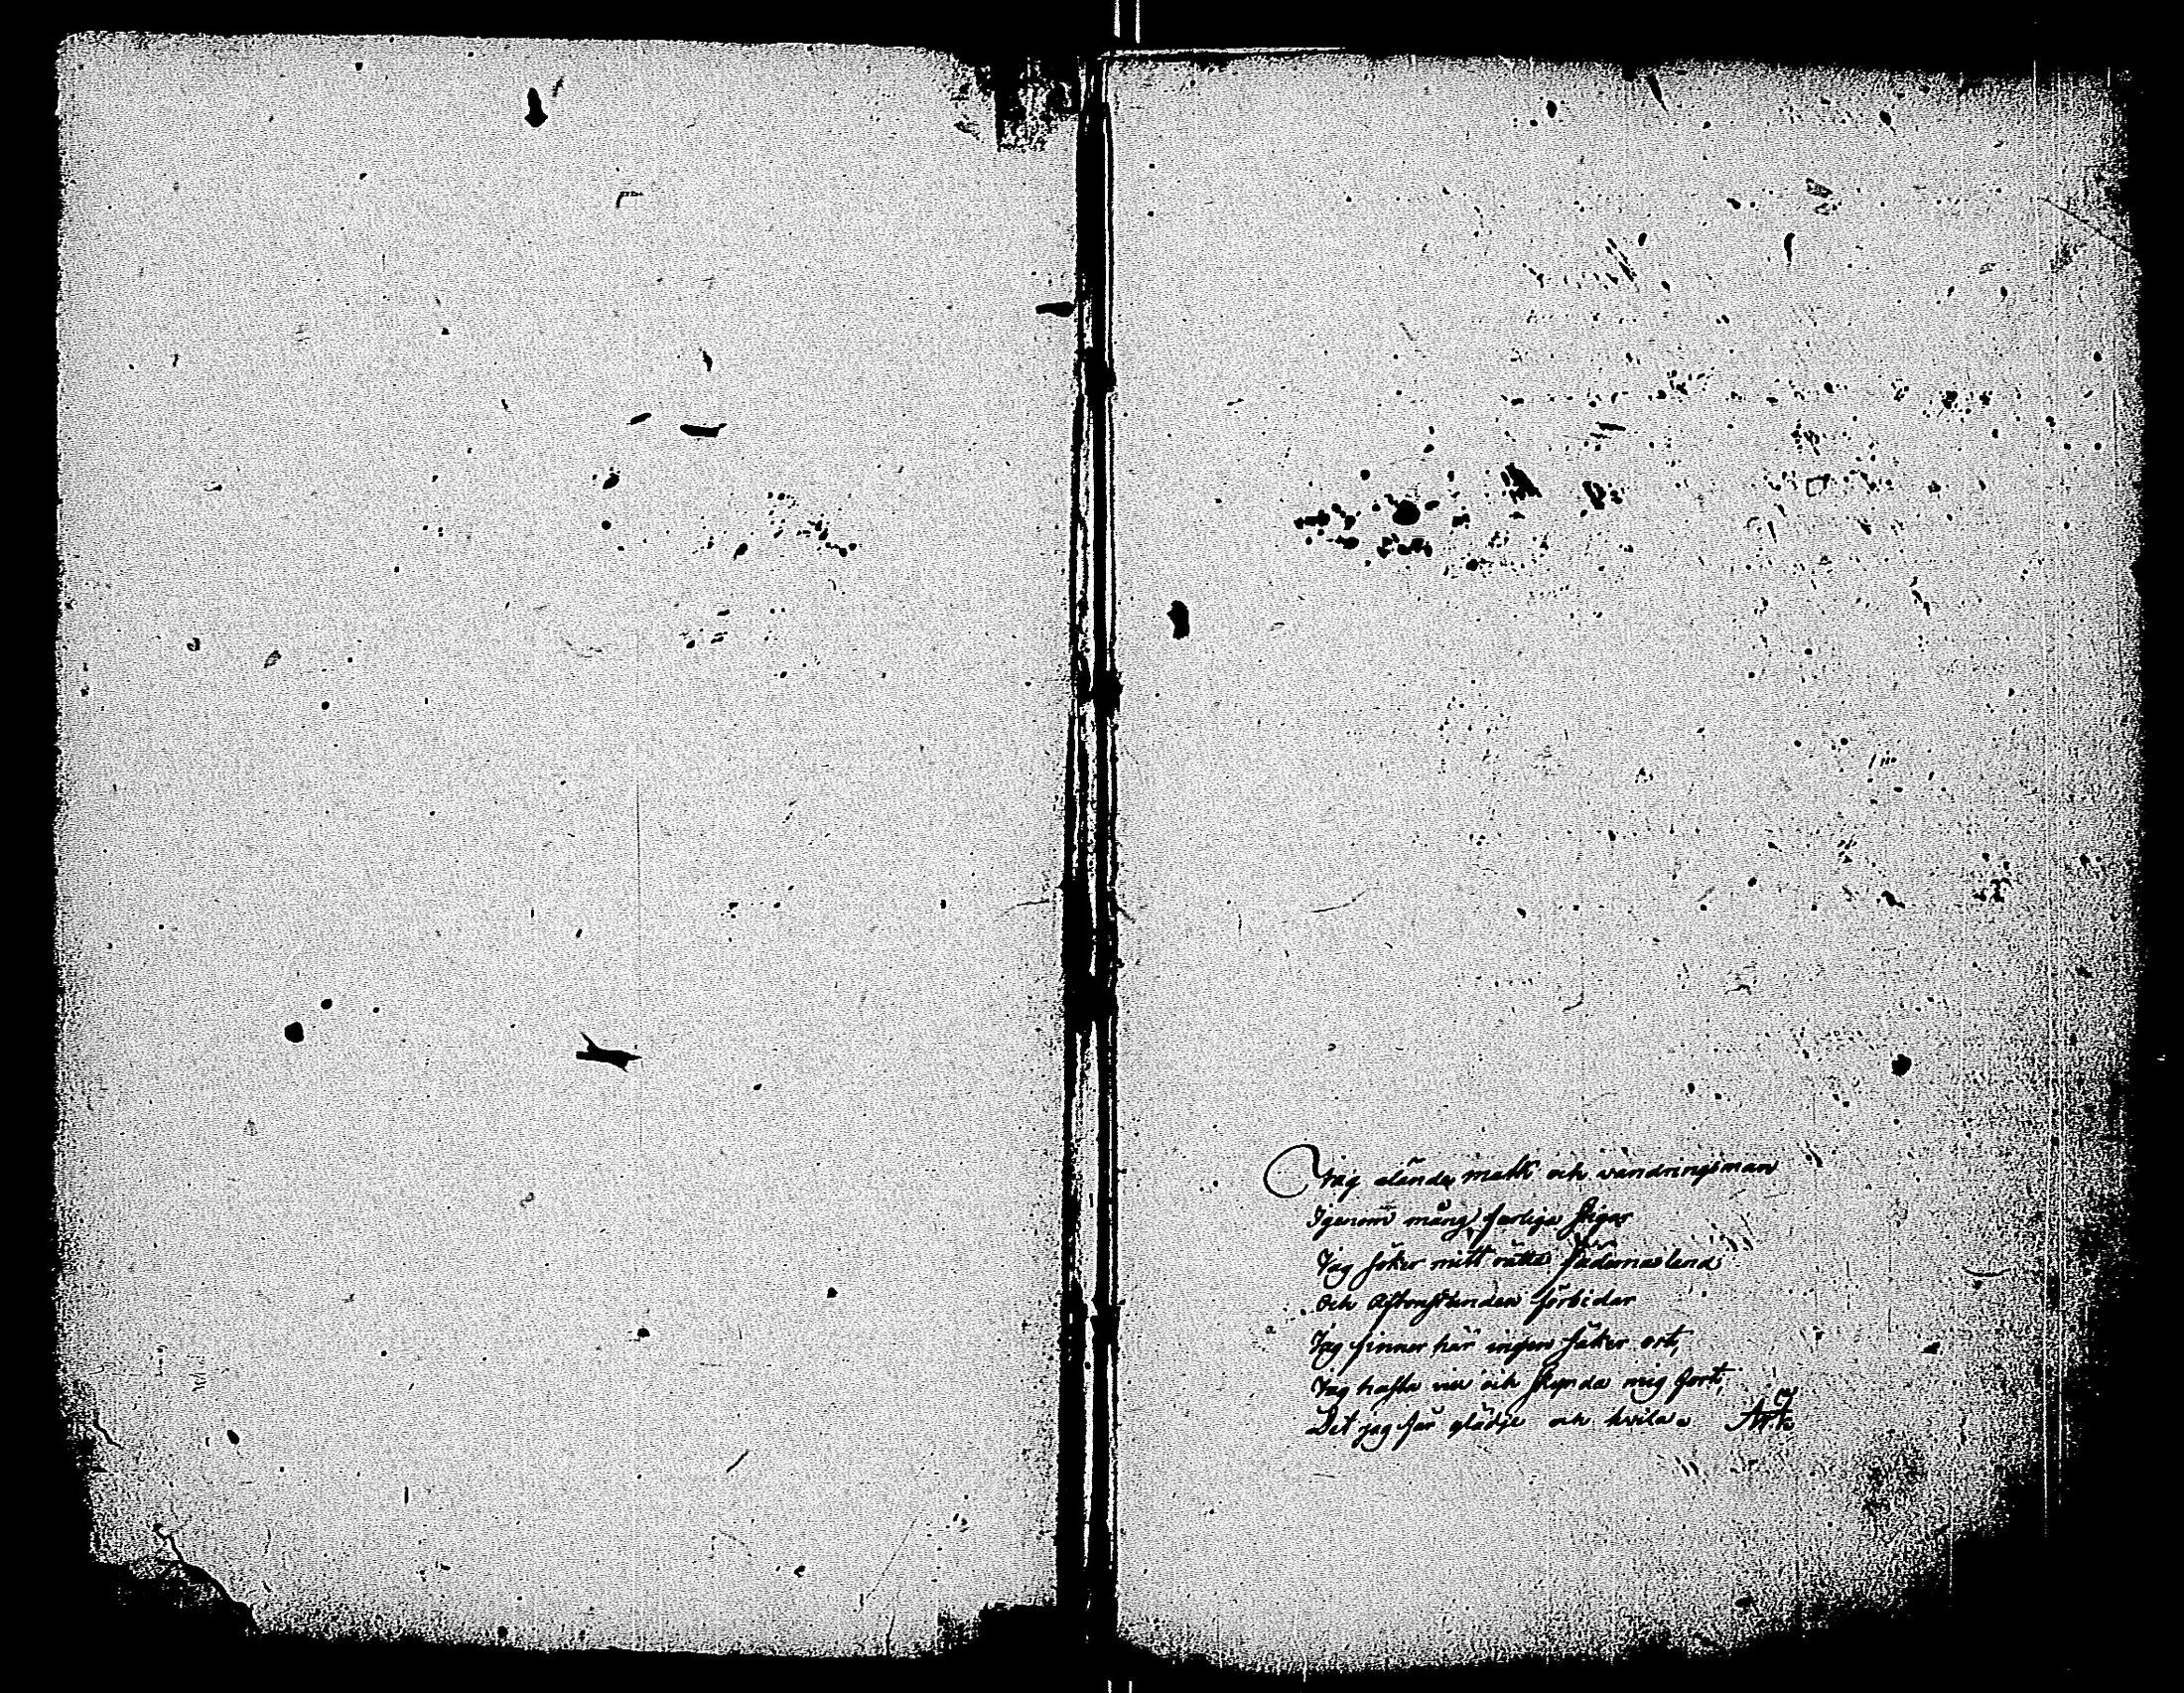 Jag elände matk och wandringsman
Igenom mång farliga stigar
Jag söker mitt rätta fädernesland
Och Aftonstunden förbidar
Jag finner här ingen säker ort,
Jag hasta vill och skynda mig fort,
Det jag får glädje och hvila